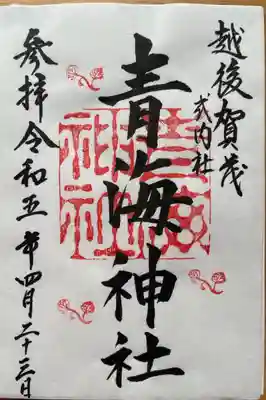 越後賀茂
式内社
青海神社
参拝令和五年四月二十三日